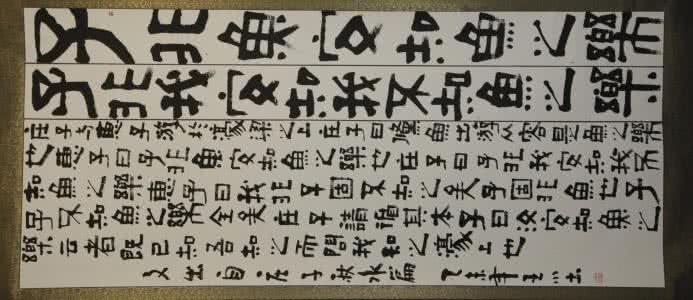 子非魚安知魚之樂
子非我安知我不知魚之樂
莊子与惠子遊於濠梁之上莊子曰鯈魚出游从容是魚之樂
也惠子曰子非魚安知魚之樂也莊子曰子非我安知我不
知魚之樂惠子曰我非子固不知之矣子固非魚也子
子不知魚之樂全矣莊子請循其本子曰汝安知魚之
樂云者既已知吾知之而問我知之濠上也
文出自莊子秋水篇 乙未年